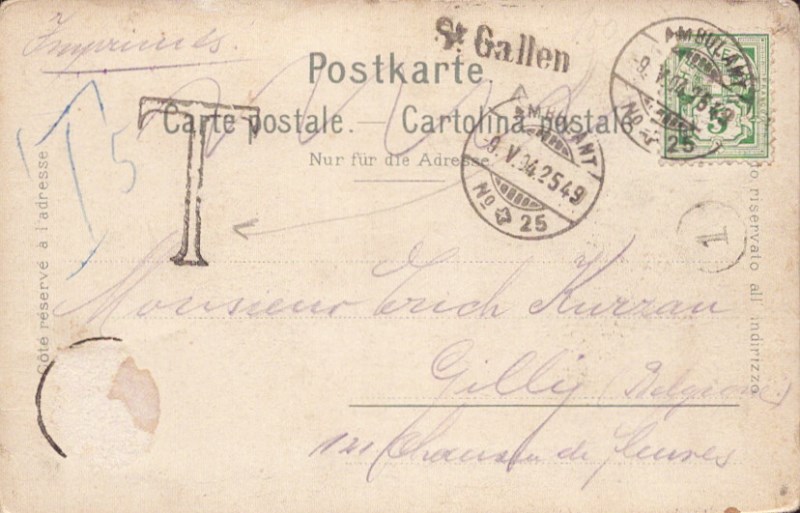 Imprimés.
St. Gallen
AMBULANT
-9. V. 04. 2549
No 25
5
Postkarte.
Carte postale. — Cartolina postale
Nur für die Adresse
AMBULANT
-9. V. 04. 2549
No 25
T
5
1
Côté réservé à l'adresse
riservato all' indirizzo
Monsieur Erich Kurzau
Gilly (Belgique)
121 Chaussée de